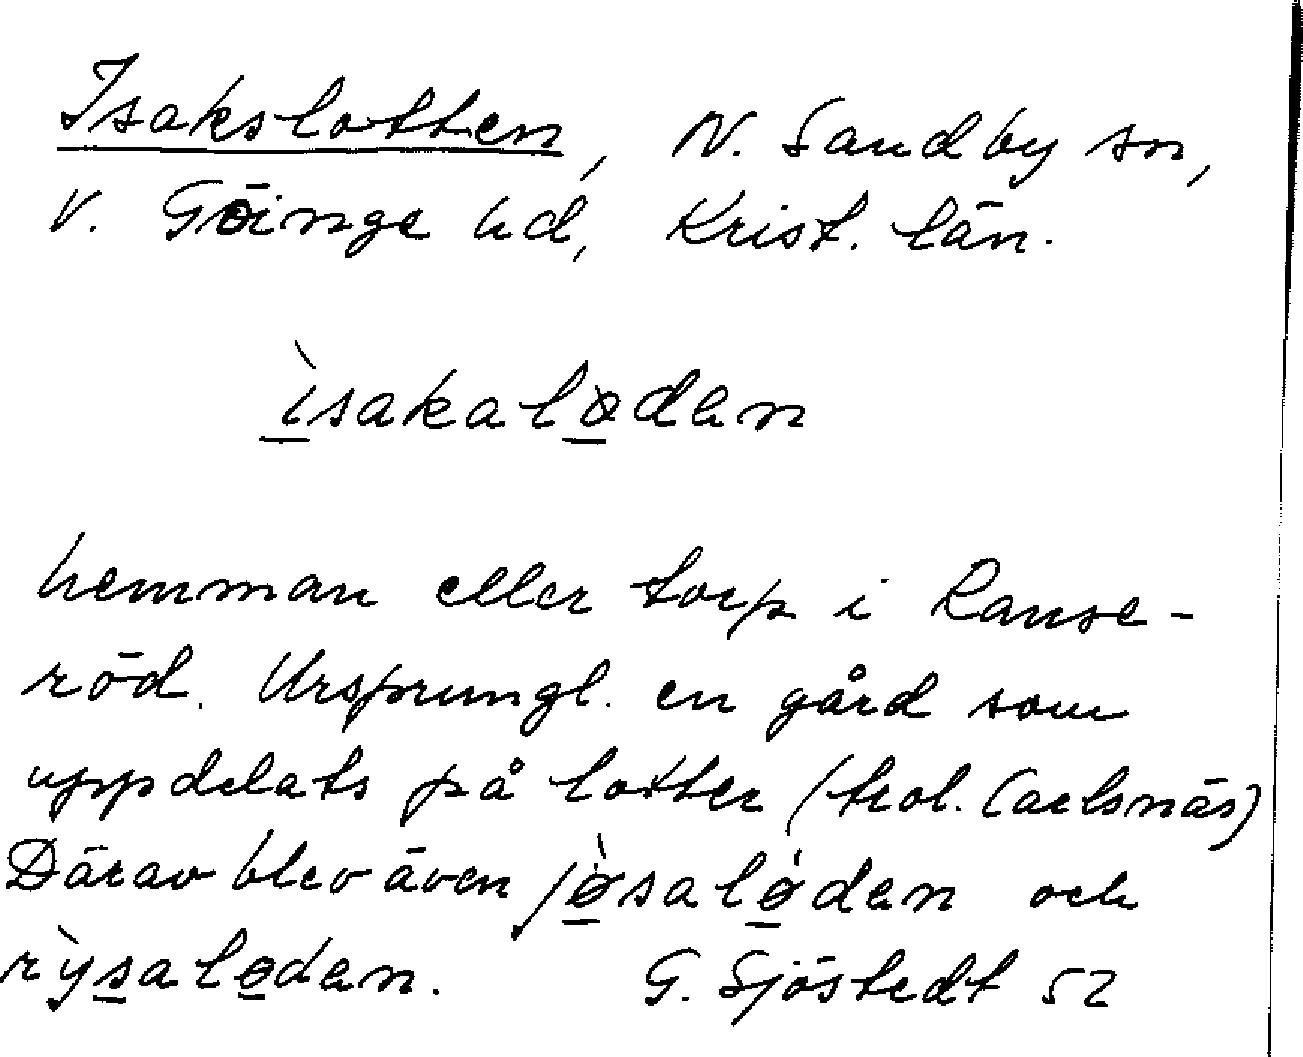 Isakslotten, N. Sandby sn,
V. Göinge hd, Krist. län.
ìsakalødan
hemman eller torp i Ranse-
röd. Ursprungl. en gård som
uppdelats på lotter (trol. Carlsnäs)
Därav blev även jø̀salødan och
rỳsalødan. G. Sjöstedt 52